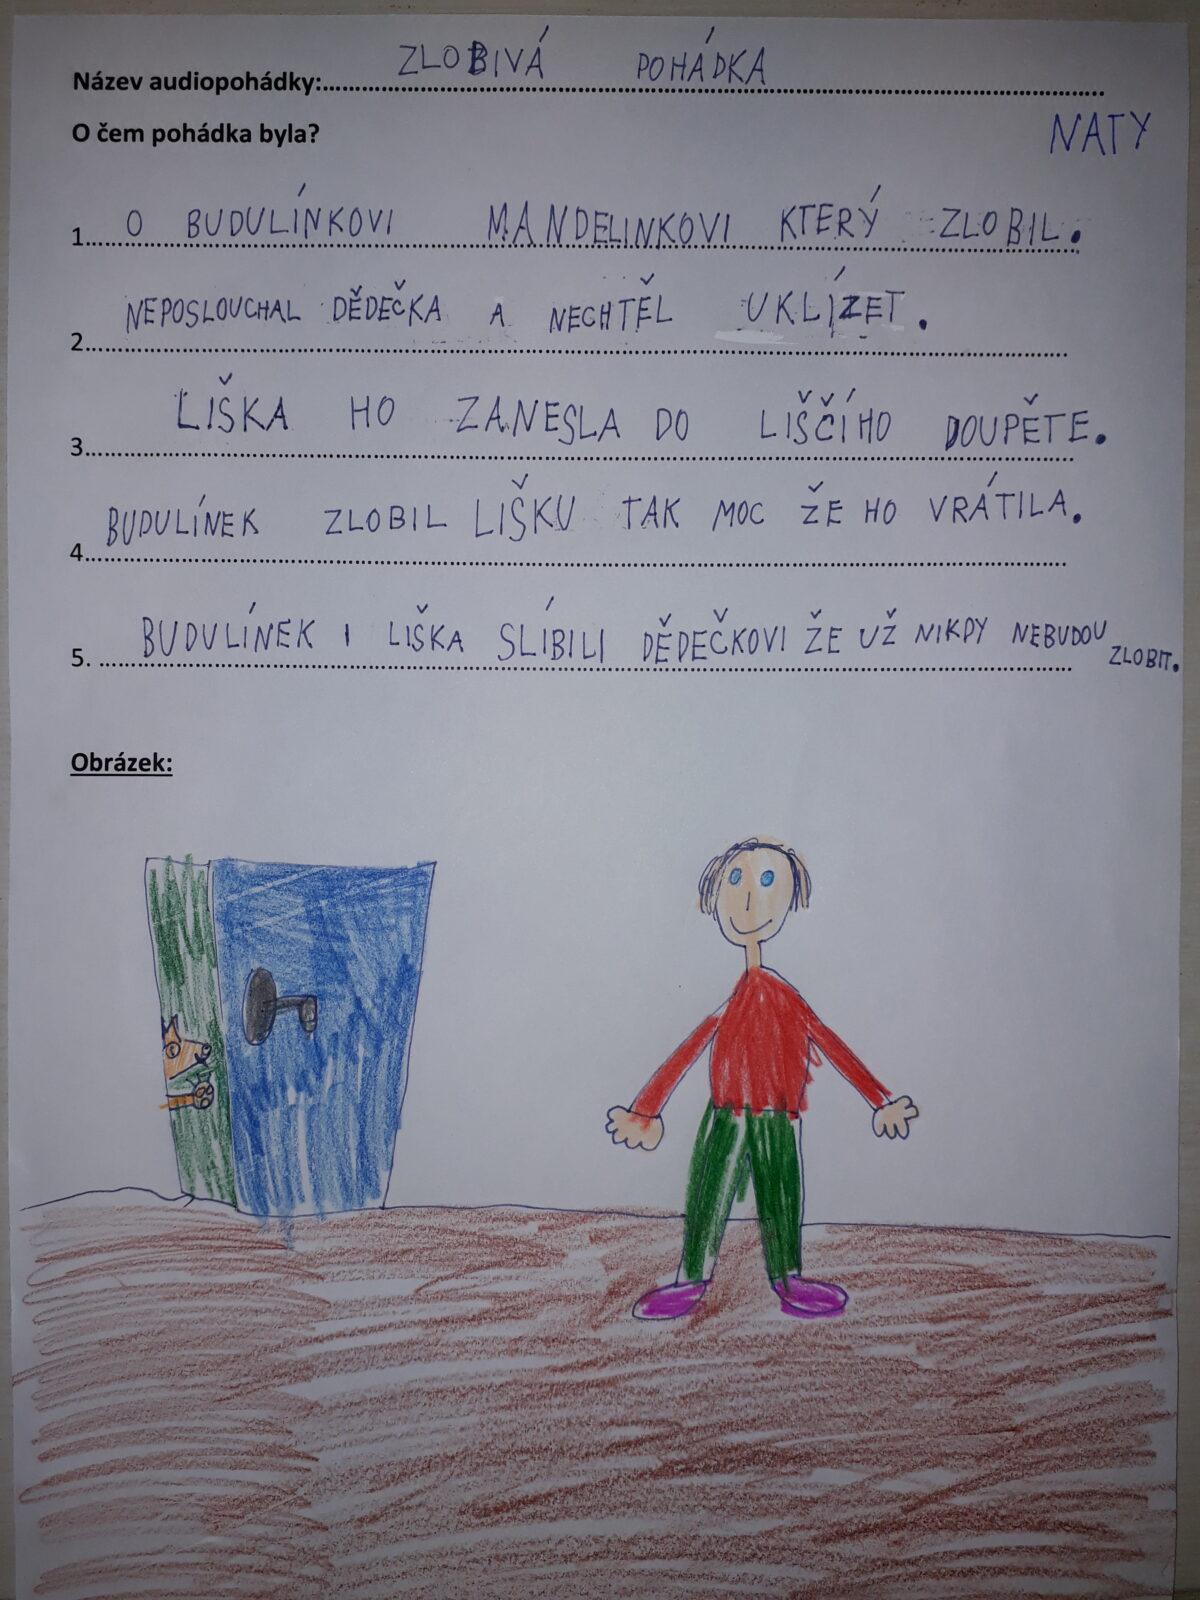 Název audiopohádky: ZLOBIVÁ POHÁDKA
O čem pohádka byla?
NATY
1. O BUDULÍNKOVI MANDELINKOVI KTERÝ ZLOBIL.
2. NEPOSLOUCHAL DĚDEČKA A NECHTĚL UKLÍZET.
3. LIŠKA HO ZANESLA DO LIŠČÍHO DOUPĚTE.
4. BUDULÍNEK ZLOBIL LIŠKU TAK MOC ŽE HO VRÁTILA.
5. BUDULÍNEK I LIŠKA SLÍBILI DĚDEČKOVI ŽE UŽ NIKPY NEBUDOU ZLOBIT.
Obrázek: